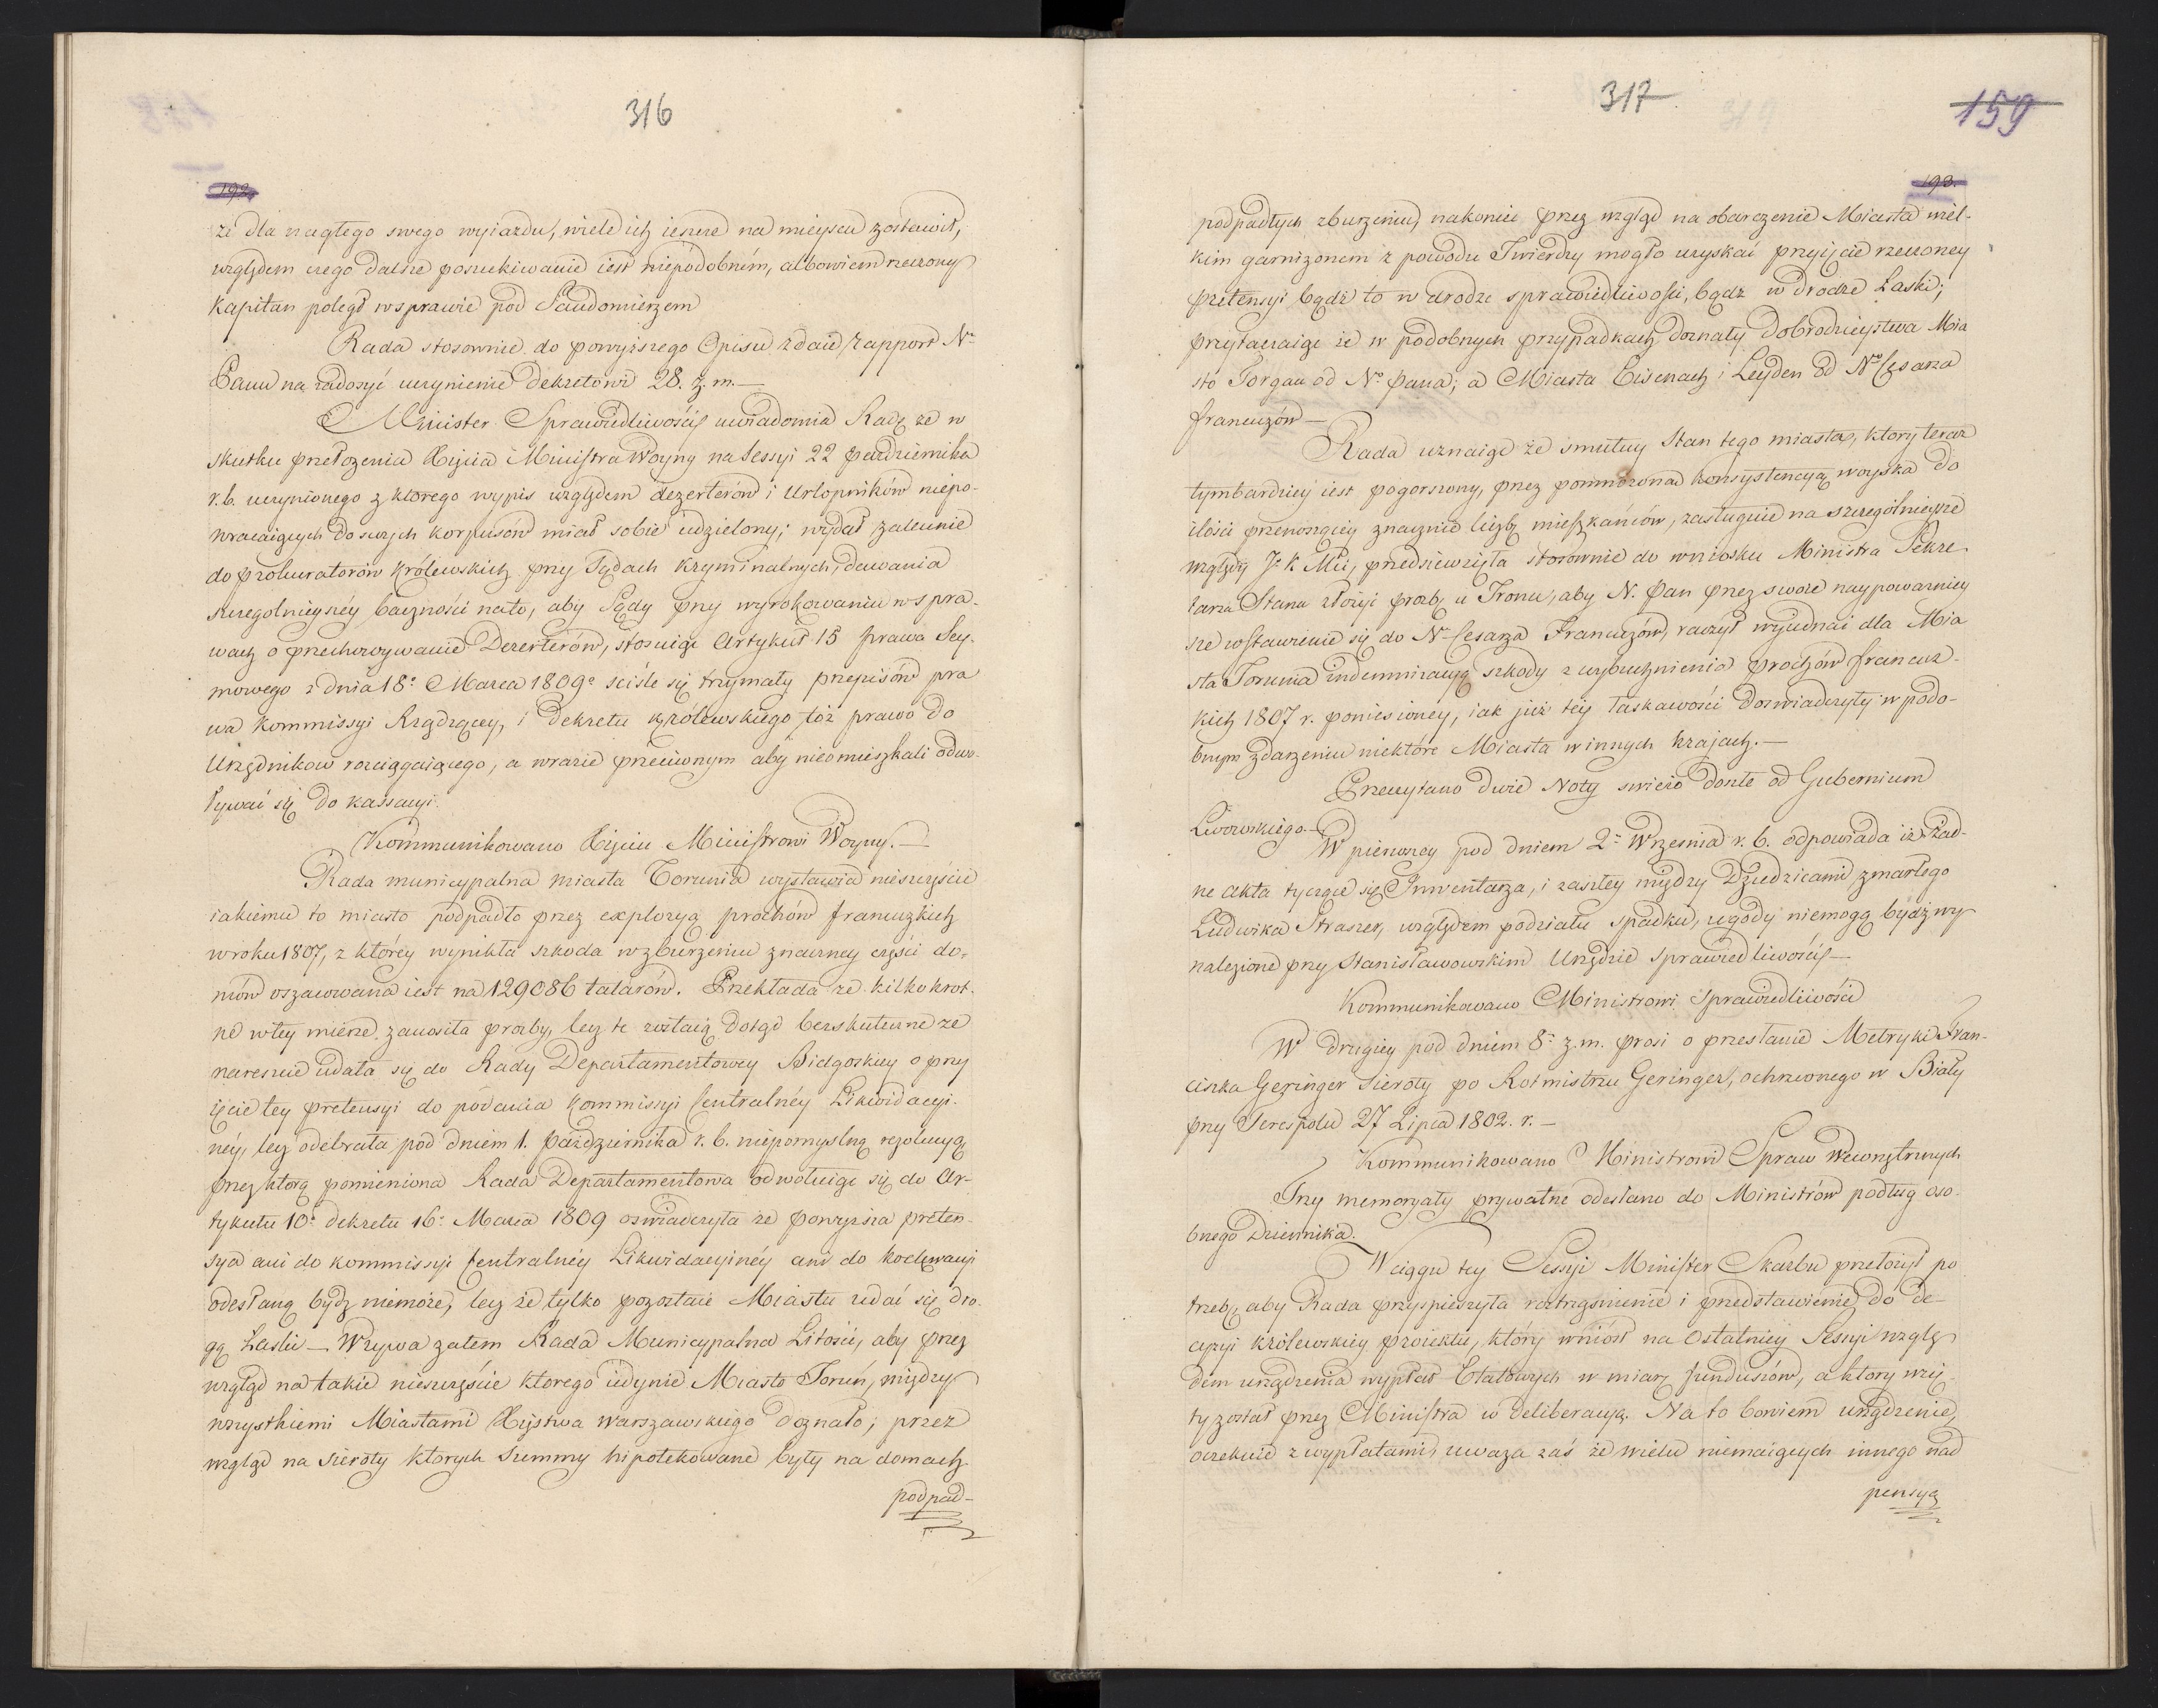 316
192.
że dla nagłego swego wyiazdu, wiele ich ieszcze na mieyscu zostawił,
względem czego dalsze poszukiwanie iest niepodobném, albowiem rzeczony
Kapitan poległ w sprawie pod Sandomierzem
Rada stosownie do powyższego Opisu zdaie rapport Nu
Panu na zadosyć uczynienie Dekretowi 28. z. m. —
Minister Sprawiedliwości uwiadomia Radę że w
skutku przełożenia Xięcia Ministra Woyny na Sessyi 22 października
r. b. uczynionego z ktorego wypis względem dezerterów i Urlopników niepo-
wracaiących do swych korpusów miał sobie udzielony; wydał zalecenie
do prokuratorów Królewskich przy Sądach kryminalnych, dawania
szczegolnieyszéy baczności na to, aby Sądy przy wyrokowaniu w spra-
wach o przechowywanie Dezerterów, stosuiąc Artykuł 15 prawa Sey-
mowego z dnia 18o Marca 1809o ściśle się trzymały przepisów pra
wa Kommissyi Rządzącey, i Dekretu Królewskiego toż prawo do
Urzędnikow rozciągaiącego, a wrazie przeciwnym aby nieomieszkali odwo-
ływać się do kassacyi.
Kommunikowano Xięciu Ministrowi Woyny. —
Rada municypalna miasta Torunia wystawia nieszczęście
iakiemu to miasto podpadło przez explozyą prochów francuzkich
w roku 1807, z któréy wynikła szkoda w zburzeniu znaczney części do-
mów oszacowana iest na 129086 talarów. Przekłada że kilkokrot-
ne w tey mierze zanosiła prozby, lecz te zostaią dotąd bezskuteczne że
nareszcie udała się do Rady Departamentowey Bidgoskiey o przy
ięcie tey pretensyi do podania Kommissyi Centralnéy Likwidacyi-
néy, lecz odebrała pod dniem 1. października r. b. niepomyslną rezolucyą
przez ktorą pomieniona Rada Departamentowa odwołuiąc się do Ar-
tykułu 10o dekretu 16o Marca 1809 oswiadczyła że powyższa preten-
sya ani do kommissyi Centralnéy Likwidacyinéy ani do kodęwacyi
odesłaną bydź niemoże, lecz że tylko pozostaie Miastu udać się dro-
gą Łaski — Wzywa zatem Rada Municypalna Litości, aby przez
wzgląd na takie nieszczęście ktorego iedynie Miasto Toruń, między
wszystkiemi Miastami Xięstwa Warszawskiego doznało; przez
wzgląd na sieroty ktorych Summy hipotekowane były na domach
podpad-
317
159
193.
podpadłych zburzeniu, nakoniec przez wzgląd na obarczenie Miasta wiel-
kim garnizonem z powodu Twierdzy mogło uzyskać przyięcie rzeczoney
pretensyi bądź to w drodze sprawiedliwości, bądz w drodze Łaski;
przytaczaiąc że w podobnych przypadkach doznały dobrodzieystwa Mia
sto Torgau od No Pana; a Miasta Eisenach i Leyden od No Cesarza
francuzów —
Rada uznaiąc że smutny Stan tego miasta, ktory teraz
tymbardziey iest pogorszony, przez pomnożona konsystencyą woyska do
ilości przenoszącey znacznie liczbę mieszkańców, zasługuie na szczególnieysze
względy J. K. Mci, przedsiewzięła stosownie do wniosku Ministra Sekre-
tarza Stanu złożyć prozbę u Tronu, aby N. Pan przez swoie naypowazniey
sze wstawienie się do No Cesarza Francuzów, raczył wyiednać dla Mia
sta Torunia indemnizacyą szkody z wybuchnienia prochów francuz-
kich 1807 r. poniesioney, iak już téy łaskawości doswiadczyły w podo-
bnym zdarzeniu niektóre Miasta w innych krajach. —
Przeczytano dwie Noty swieżo doszłe od Gubernium
Lwowskiego. —
W pierwszey pod dniem 2o Wrzesnia r. b. odpowiada iż żad-
ne akta tyczące się Inwentarza, i zaszłey między Dziedzicami zmarłego
Ludwika Straszer, względem podziału spadku, ugody niemogą bydź wy-
nalezione przy Stanisławowskim Urzędzie Sprawiedliwości —
Kommunikowano Ministrowi Sprawiedliwości
W drugiey pod dniem 8o z. m. prosi o przesłanie Metryki Fran-
ciszka Geringer Sieroty po Rotmistrzu Geringer, ochrzconego w Biały
przy Terespolu 27 Lipca 1802. r. —
Kommunikowano Ministrowi Spraw Wewnętrznych
Trzy memoryały prywatne odesłano do Ministrów podług oso-
bnego Dziennika.
W ciągu tey Sessyi Minister Skarbu przełożył po
trzebę, aby Rada przyspieszyła roztrząsnienie i przedstawienie do de-
cyzyi Królewskiey proiektu, który wniósł na Ostatniey Sessyi wzglę
dem urządzenia wypłat Etatowych w miarę funduszów, a ktory wzię-
ty został przez Ministra w deliberacyą. Na to bowiem urządzenie,
oczekuie z wypłatami, uwaza zaś że wielu niemaiących innego nad
pensyą